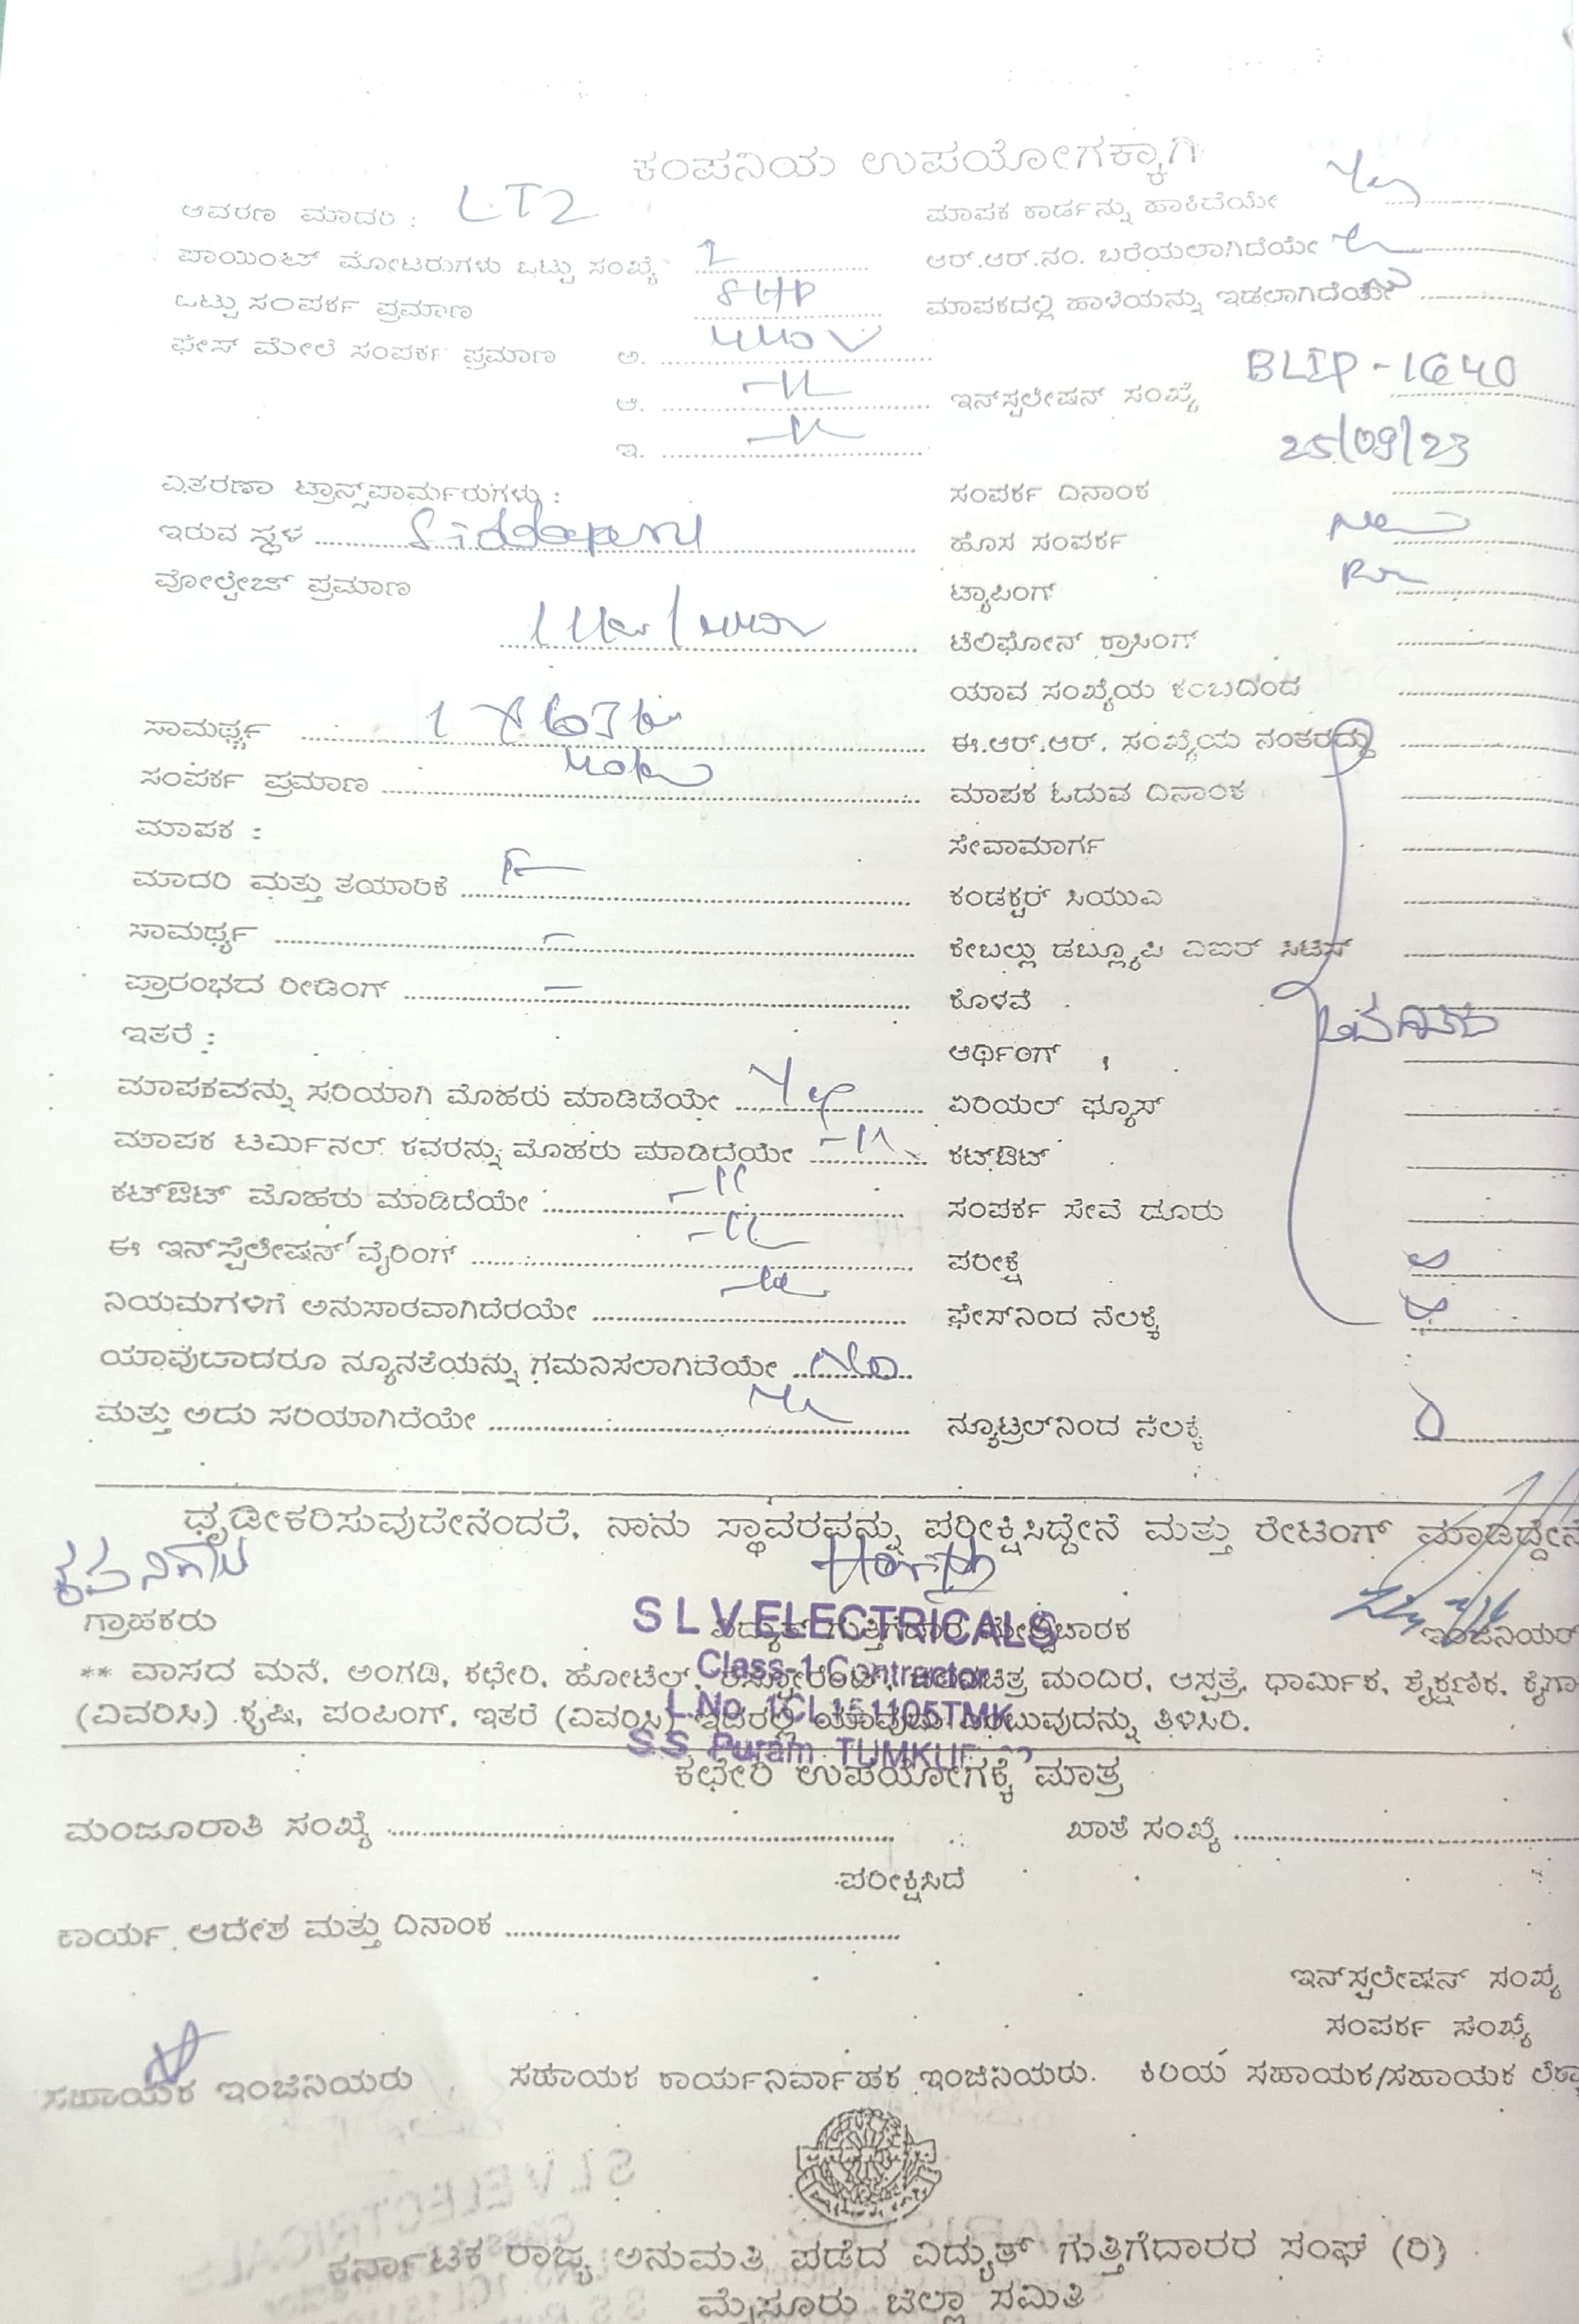 ಕಂಪನಿಯ ಉಪಯೋಗಕ್ಕಾಗಿ
ಆವರಣ ಮಾದರಿ : LT2
ಮಾಪಕ ಕಾರ್ಡನ್ನು ಹಾಕಿದೆಯೇ Yes
ಪಾಯಿಂಟ್ ಮೋಟರುಗಳು ಒಟ್ಟು ಸಂಖ್ಯೆ 1
ಆರ್.ಆರ್.ನಂ. ಬರೆಯಲಾಗಿದೆಯೇ
ಒಟ್ಟು ಸಂಪರ್ಕ ಪ್ರಮಾಣ 5HP
ಮಾಪಕದಲ್ಲಿ ಹಾಳೆಯನ್ನು ಇಡಲಾಗಿದೆಯೇ
ಫೇಸ್ ಮೇಲೆ ಸಂಪರ್ಕ ಪ್ರಮಾಣ ಅ. 440 V
ಆ. -11-
ಇನ್‌ಸ್ಪಲೇಷನ್ ಸಂಖ್ಯೆ BLIP-1640
ಇ. -11-
25/09/23
ವಿತರಣಾ ಟ್ರಾನ್ಸ್‌ಪಾರ್ಮರುಗಳು :
ಸಂಪರ್ಕ ದಿನಾಂಕ
ಇರುವ ಸ್ಥಳ
ಹೊಸ ಸಂಪರ್ಕ
ವೋಲ್ಟೇಜ್ ಪ್ರಮಾಣ
ಟ್ಯಾಪಿಂಗ್
ಟೆಲಿಫೋನ್ ಕ್ರಾಸಿಂಗ್
ಯಾವ ಸಂಖ್ಯೆಯ ಕಂಬದಿಂದ
ಸಾಮರ್ಥ್ಯ 1 X 63
ಈ.ಆರ್.ಆರ್. ಸಂಖ್ಯೆಯ ನಂತರದ್ದು
ಸಂಪರ್ಕ ಪ್ರಮಾಣ
ಮಾಪಕ ಓದುವ ದಿನಾಂಕ
ಮಾಪಕ :
ಸೇವಾಮಾರ್ಗ
ಮಾದರಿ ಮತ್ತು ತಯಾರಿಕೆ
ಕಂಡಕ್ಟರ್ ಸಿಯುಎ
ಸಾಮರ್ಥ್ಯ
ಕೇಬಲ್ಲು ಡಬ್ಲ್ಯೂಪಿ ಎಐರ್ ಸಿಟಿಸ್
ಪ್ರಾರಂಭದ ರೀಡಿಂಗ್
ಕೊಳವೆ
ಇತರೆ :
ಆರ್ಥಿಂಗ್
ಮಾಪಕವನ್ನು ಸರಿಯಾಗಿ ಮೊಹರು ಮಾಡಿದೆಯೇ Yes
ಏರಿಯಲ್ ಫ್ಯೂಸ್
ಮಾಪಕ ಟರ್ಮಿನಲ್ ಕವರನ್ನು ಮೊಹರು ಮಾಡಿದೆಯೇ -11-
ಕಟ್‌ಔಟ್
ಕಟ್‌ಔಟ್ ಮೊಹರು ಮಾಡಿದೆಯೇ -11
ಸಂಪರ್ಕ ಸೇವೆ ದೂರು
ಈ ಇನ್‌ಸ್ಪೆಲೇಷನ್ ವೈರಿಂಗ್ -11-
ಪರೀಕ್ಷೆ
ನಿಯಮಗಳಿಗೆ ಅನುಸಾರವಾಗಿದೆರಯೇ -11-
ಫೇಸ್‌ನಿಂದ ನೆಲಕ್ಕೆ
ಯಾವುದಾದರೂ ನ್ಯೂನತೆಯನ್ನು ಗಮನಿಸಲಾಗಿದೆಯೇ No
ಮತ್ತು ಅದು ಸರಿಯಾಗಿದೆಯೇ
ನ್ಯೂಟ್ರಲ್‌ನಿಂದ ನೆಲಕ್ಕೆ 0
ಧೃಡೀಕರಿಸುವುದೇನೆಂದರೆ, ನಾನು ಸ್ಥಾವರವನ್ನು ಪರೀಕ್ಷಿಸಿದ್ದೇನೆ ಮತ್ತು ರೇಟಿಂಗ್ ಮಾಡಿದ್ದೇನೆ
S L V ELECTRICALS
ಗ್ರಾಹಕರು
ವಿದ್ಯುತ್ ಗುತ್ತಿಗೆದಾರ ಮೇಲ್ವಿಚಾರಕ
ಇಂಜಿನಿಯರ್
Class-1 Contractor
** ವಾಸದ ಮನೆ, ಅಂಗಡಿ, ಕಛೇರಿ, ಹೋಟೆಲ್, ರೆಸ್ಟೋರೆಂಟ್, ಚಲನಚಿತ್ರ ಮಂದಿರ, ಆಸ್ಪತ್ರೆ, ಧಾರ್ಮಿಕ, ಶೈಕ್ಷಣಿಕ, ಕೈಗಾ
L.No. 1CL151105TMK
(ವಿವರಿಸಿ) ಕೃಷಿ, ಪಂಪಿಂಗ್, ಇತರೆ (ವಿವರಿಸಿ) ಇದರಲ್ಲಿ ಯಾವುದು ಎಂಬುವುದನ್ನು ತಿಳಿಸಿರಿ.
S.S. Puram TUMKUR
ಕಛೇರಿ ಉಪಯೋಗಕ್ಕೆ ಮಾತ್ರ
ಮಂಜೂರಾತಿ ಸಂಖ್ಯೆ
ಖಾತೆ ಸಂಖ್ಯೆ
ಪರೀಕ್ಷಿಸಿದೆ
ಕಾರ್ಯ ಆದೇಶ ಮತ್ತು ದಿನಾಂಕ
ಇನ್‌ಸ್ಪಲೇಷನ್ ಸಂಖ್ಯೆ
ಸಂಪರ್ಕ ಸಂಖ್ಯೆ
ಸಹಾಯಕ ಇಂಜಿನಿಯರು
ಸಹಾಯಕ ಕಾರ್ಯನಿರ್ವಾಹಕ ಇಂಜಿನಿಯರು.
ಕಿರಿಯ ಸಹಾಯಕ/ಸಹಾಯಕ ಲೆಕ್ಕಾ
ಕರ್ನಾಟಕ ರಾಜ್ಯ ಅನುಮತಿ ಪಡೆದ ವಿದ್ಯುತ್ ಗುತ್ತಿಗೆದಾರರ ಸಂಘ (ರಿ)
ಮೈಸೂರು ಜಿಲ್ಲಾ ಸಮಿತಿ